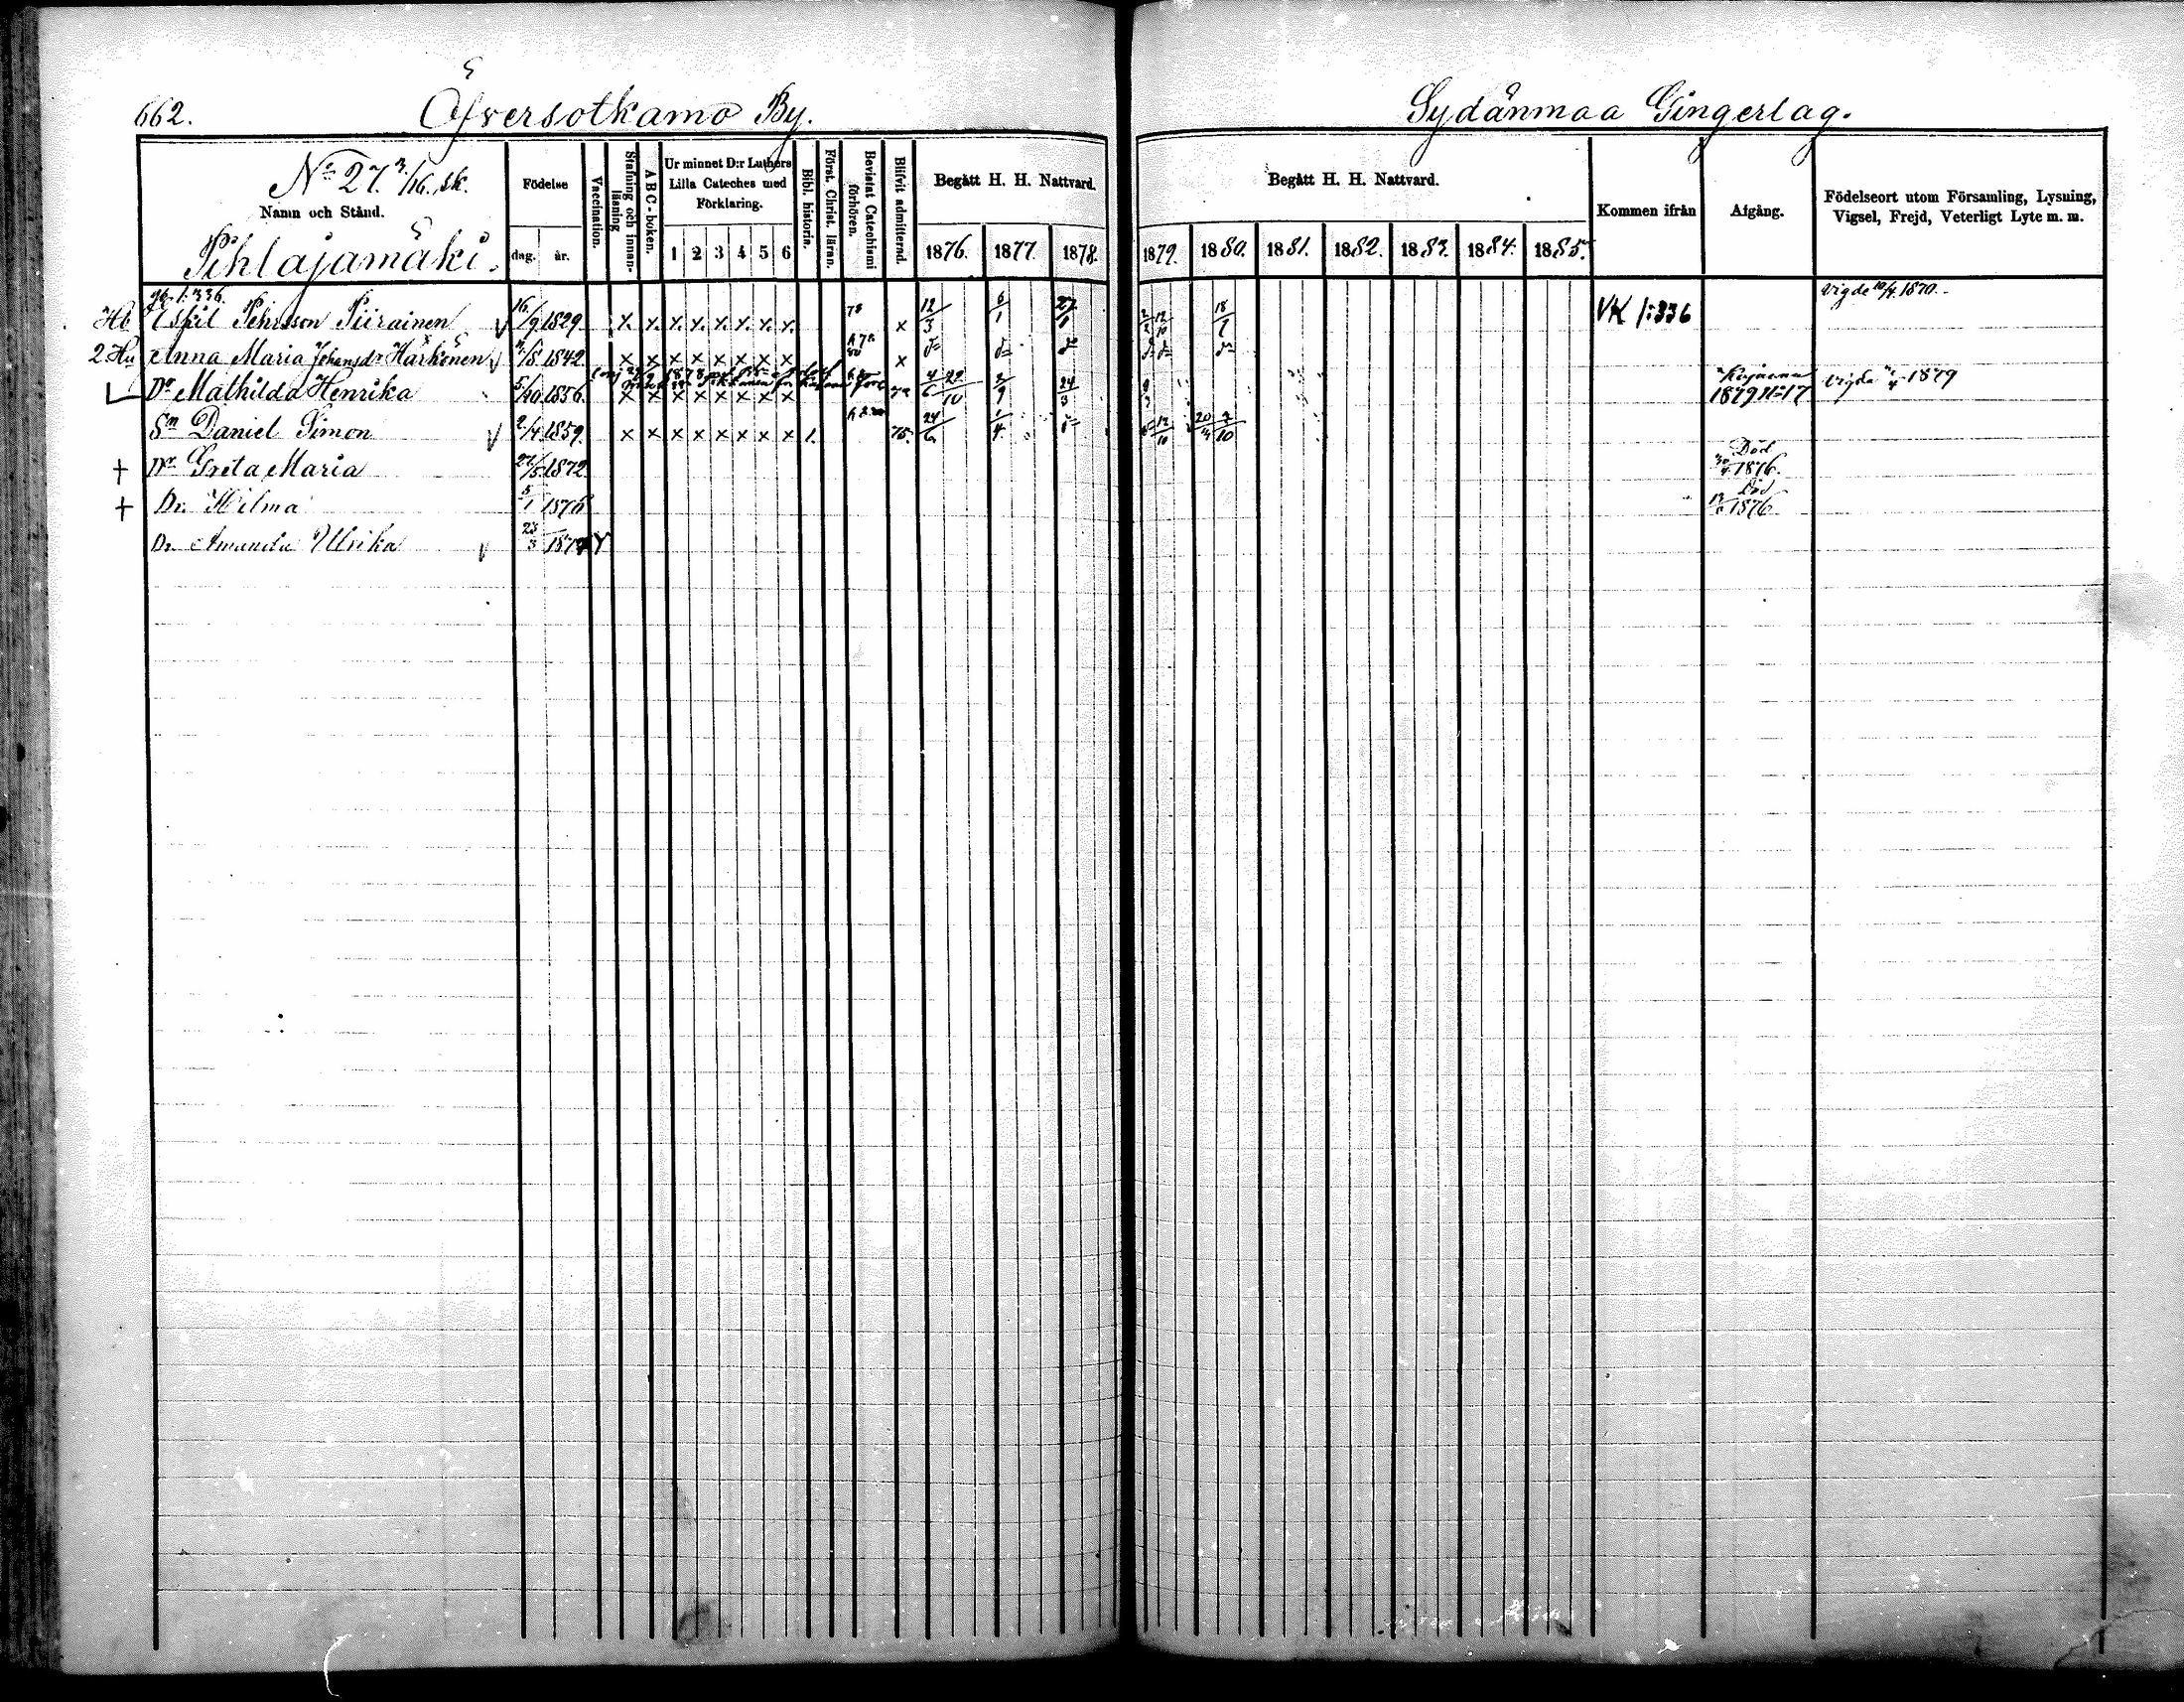 662.
Öfversotkamo By.
Sydänmaa Gingerlag.
No 27. 3/16. sk.
Namn och Stånd.
Pihlajamäki.
Födelse
dag. år.
Vaccination.
Stafning och innan-läsning
A B C-boken.
Ur minnet D:r Luthers
Lilla Cateches med
Förklaring.
1 2 3 4 5 6
Bibl. historia.
Först. Christ. läran.
Bevistat Catechismi förhören.
Blifvit admitterad.
Begått H. H. Nattvard.
1876. 1877. 1878.
Begått H. H. Nattvard.
1879. 1880. 1881. 1882. 1883. 1884. 1885.
Kommen ifrån
Afgång.
Födelseort utom Församling, Lysning,
Vigsel, Frejd, Veterligt Lyte m. m.
1:336.
Hb Eskil Pehrsson Piirainen 16/9 1829 x x x x x x x x 78 x 12/3 6/1 27/1 18/1 VK 1:336 Vigde 10/4 1870.
2 Hu Anna Maria Johansdr Härkönen /8 1842 x x x x x x x x x
Dr Mathilda Henrika 5/10 1856. x x x x x x x x 4/6 22/10 2/9 24/3 1879 II=17 Vigda /4 1879
Sn Daniel Simon 2/4 1859. x x x x x x x x 1. 75. 24/6 1/4 12/10 2/10
† Dr Greta Maria 27/5 1872 Död 30/4 1876.
† Dr. Hilma 5/1 1876 Död 1876
Dr Amanda Ulrika 23/3